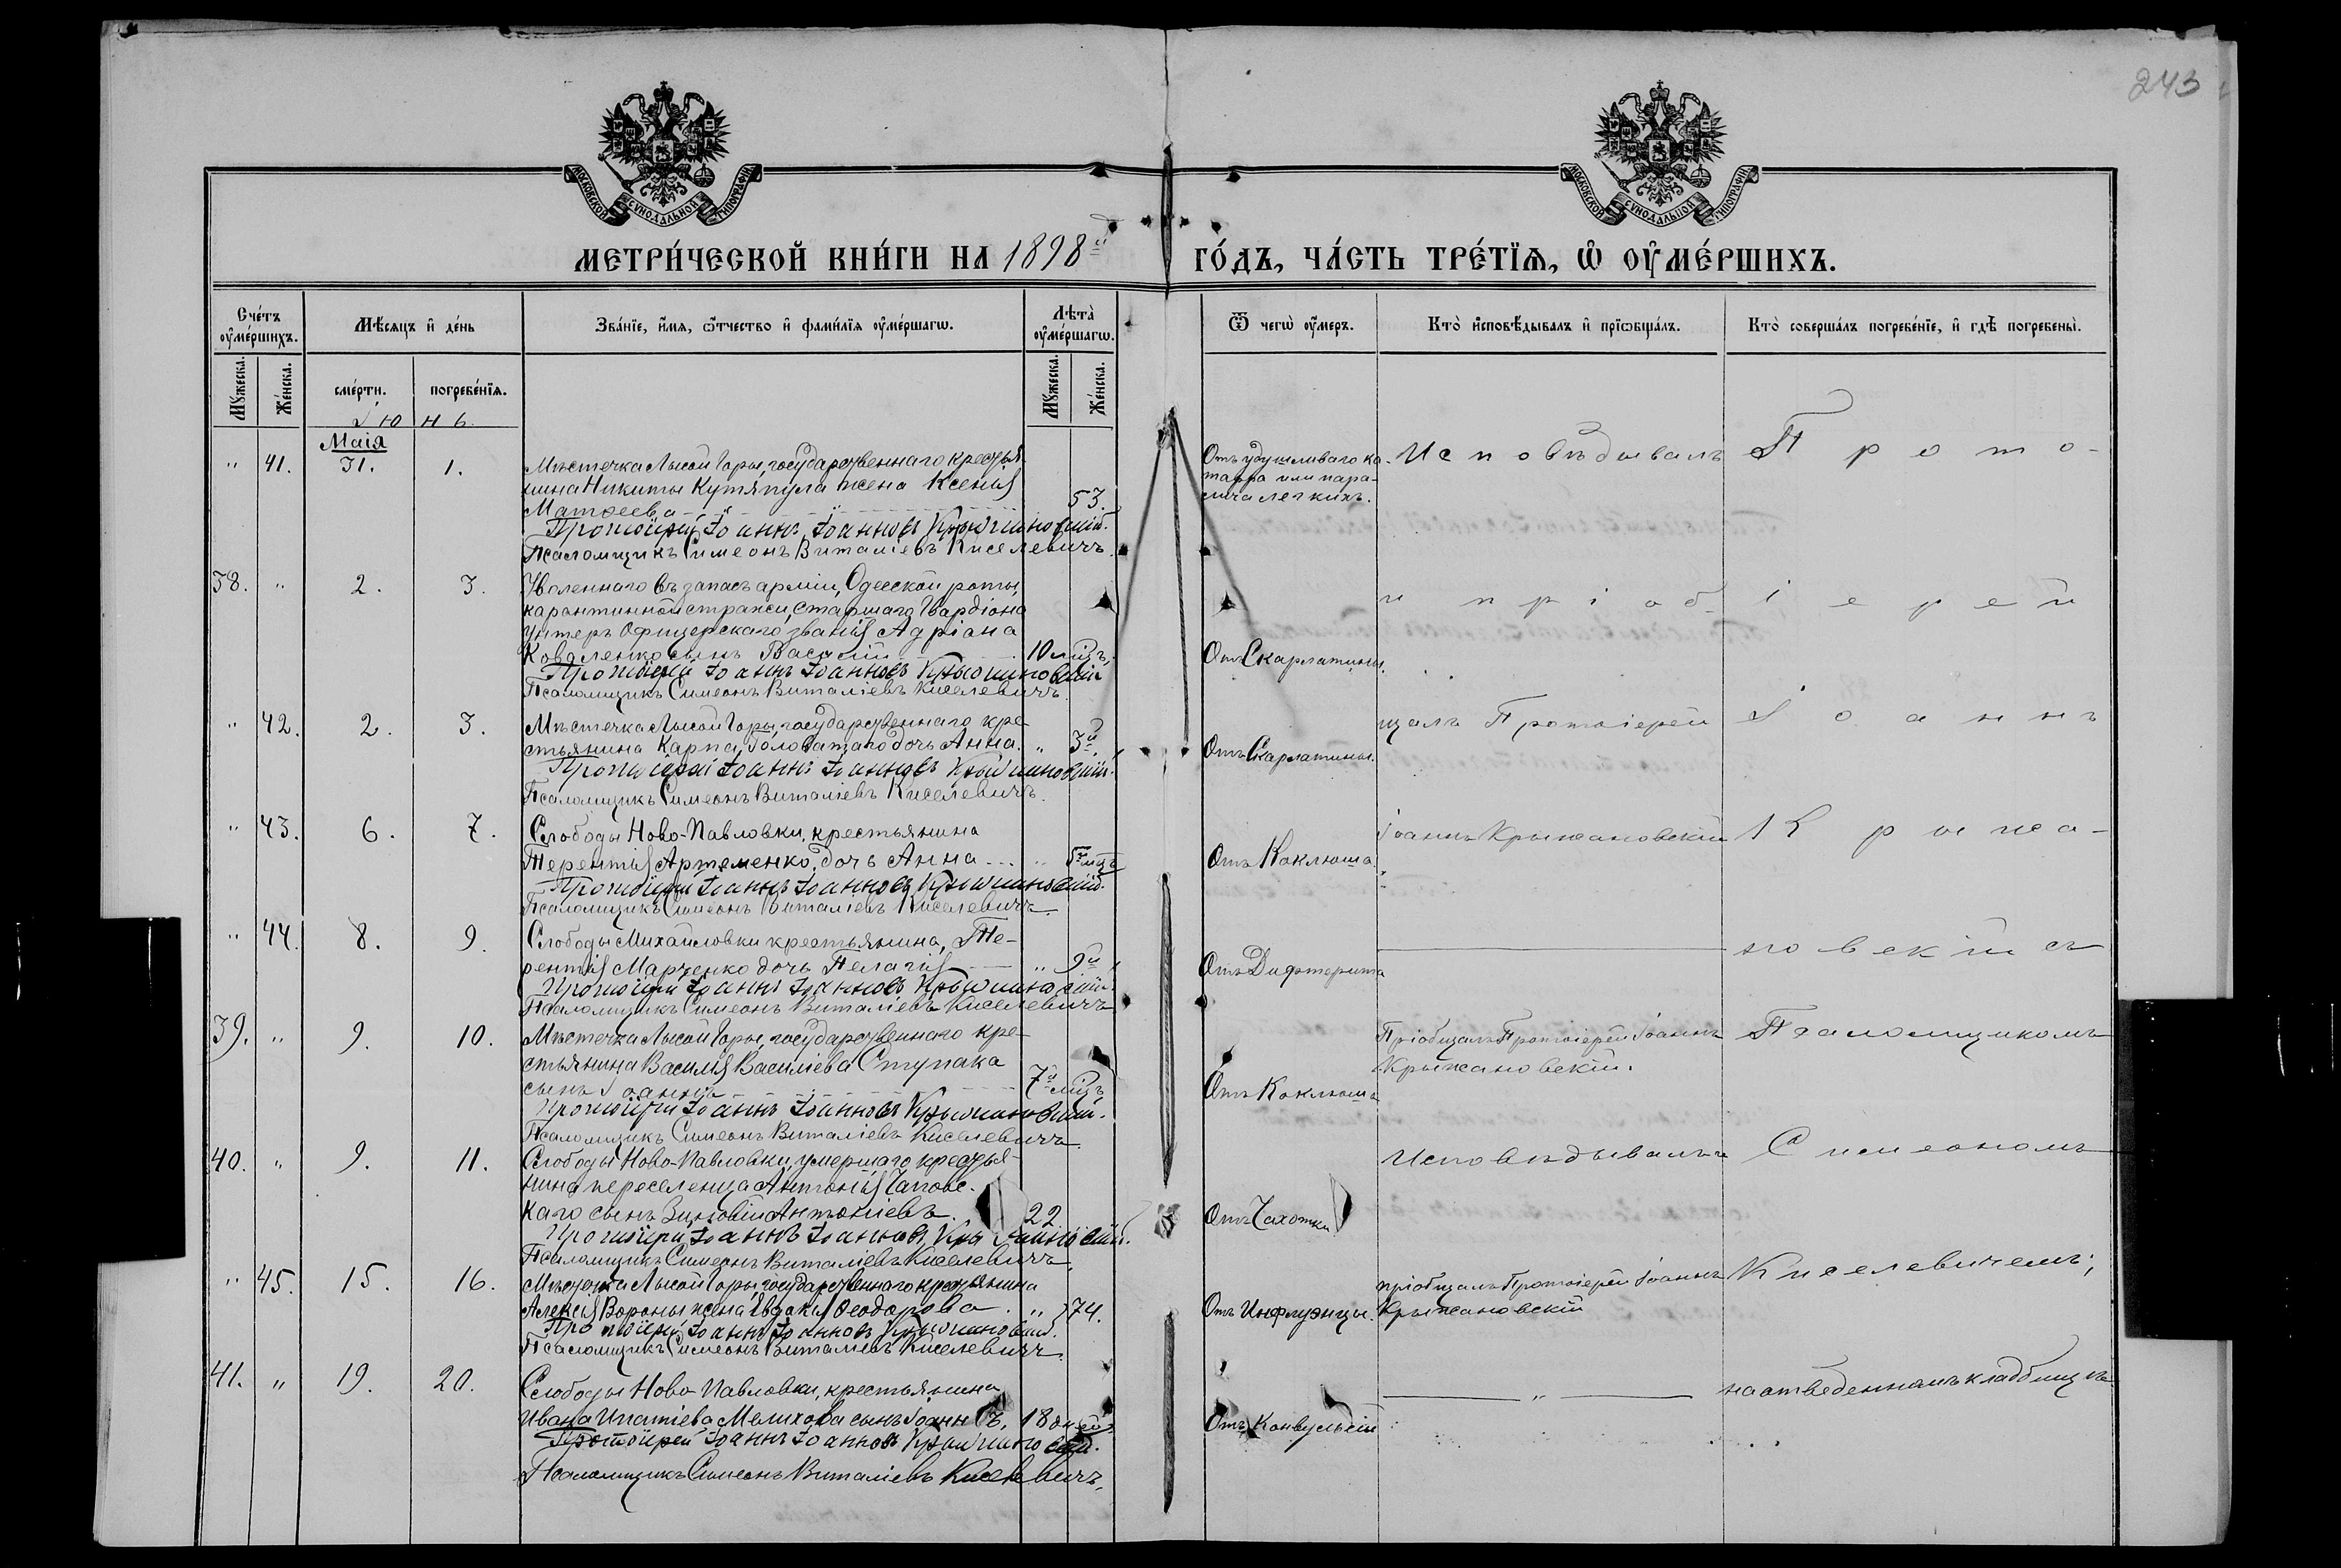 243
МОСКОВСКОЙ СѴНОДАЛЬНОЙ ТИПОГРАФІИ
МОСКОВСКОЙ СѴНОДАЛЬНОЙ ТИПОГРАФІИ
МЕТРИ́ЧЕСКОЙ КНИ́ГИ НА 1898й ГО́ДЪ, ЧА́СТЬ ТРЕ́ТЇѦ, Ѡ҆ ОУ҆МЕ́РШИХЪ.
Сче́тъ оу҆ме́ршихъ.
Мѣ́сяцъ и҆ де́нь
Зва́нїе, и҆́мя, ѻ҆́тчество и҆ фами́лїя оу҆ме́ршагѡ.
Лѣта̀ оу҆ме́ршагѡ.
Ѿ чегѡ̀ оу҆́меръ.
Кто̀ и҆сповѣ́дывалъ и҆ прїѡбща́лъ.
Кто̀ соверша́лъ погребе́нїе, и҆ гдѣ̀ погребены̀.
Мꙋ́жеска.
Же́нска.
сме́рти.
погребе́нїя.
Мꙋ́жеска.
Же́нска.
Іюнь.
Маія
" 41. 31. 1. Мѣстечка Лысой Горы, государственнаго крестья-
нина Никиты Кутяпула жена Ксенія
Матѳеева 53.
Протоіерей Іоаннъ Іоанновъ Крыжановскій.
Псаломщикъ Симеонъ Виталіевъ Киселевичъ.
Отъ удушливаго ка-
тарра или пара-
лича легкихъ.
Исповѣдывалъ
Прото-
38. " 2. 3. Уволеннаго въ запасъ арміи, Одесской роты,
карантинной стражи, старшаго Гвардіона
Унтеръ Офицерскаго званія Адріана
Коваленко сынъ Василій 10 мцъ.
Протоіерей Іоаннъ Іоанновъ Крыжановскій
Псаломщикъ Симеонъ Виталіевъ Киселевичъ.
Отъ Скарлатины.
и пріоб-
іерей
" 42. 2. 3. Мѣстечка Лысой Горы, государственнаго кре-
стьянина Карпа Головатаго дочь Анна. " 3й
Протоіерей Іоаннъ Іоанновъ Крыжановскій.
Псаломщикъ Симеонъ Виталіевъ Киселевичъ.
Отъ Скарлатины.
щалъ Протоіерей
Іоаннъ
" 43. 6. 7. Слободы Ново-Павловки, крестьянина
Терентія Артеменко, дочь Анна " 5 мцъ
Протоіерей Іоаннъ Іоанновъ Крыжановскій.
Псаломщикъ Симеонъ Виталіевъ Киселевичъ.
Отъ Коклюша.
Іоаннъ Крыжановскій
Крыжа-
" 44. 8. 9. Слободы Михайловки крестьянина, Те-
рентія Марченко дочь Пелагія " 9й
Протоіерей Іоаннъ Іоанновъ Крыжановскій.
Псаломщикъ Симеонъ Виталіевъ Киселевичъ
Отъ Дифтерита
новскій съ
39. " 9. 10. Мѣстечка Лысой Горы, государственнаго кре-
стьянина Василія Василіева Ступака
сынъ Іоаннъ 7й мцъ
Протоіерей Іоаннъ Іоанновъ Крыжановскій.
Псаломщикъ Симеонъ Виталіевъ Киселевичъ.
Отъ Коклюша
Пріобщалъ Протоіерей Іоаннъ
Крыжановскій.
Псаломщикомъ
40. " 9. 11. Слободы Ново-Павловки, умершаго крестья-
нина переселенца Антонія
каго сынъ Зиновій Антоніевъ. 22
Протоіерей Іоаннъ Іоанновъ Крыжановскій.
Псаломщикъ Симеонъ Виталіевъ Киселевичъ.
Отъ Чахотки
Исповѣдывалъ и
Симеономъ
" 45. 15. 16. Мѣстечка Лысой Горы, государственнаго крестьянина
Алексія Вороны жена Евдокія Ѳеодорова. " 74.
Протоіерей Іоаннъ Іоанновъ Крыжановскій.
Псаломщикъ Симеонъ Виталіевъ Киселевичъ.
Отъ Инфлуэнцы.
пріобщалъ Протоіерей Іоаннъ
Крыжановскій
Киселевичемъ;
41. " 19. 20. Слободы Ново-Павловки, крестьянина
Ивана Ипатіева Мелихова сынъ Іоаннъ, 18 дней
Протоіерей Іоаннъ Іоанновъ Крыжановскій.
Псаломщикъ Симеонъ Виталіевъ Киселевичъ.
Отъ Конвульсій
"
на отведенномъ кладбищѣ